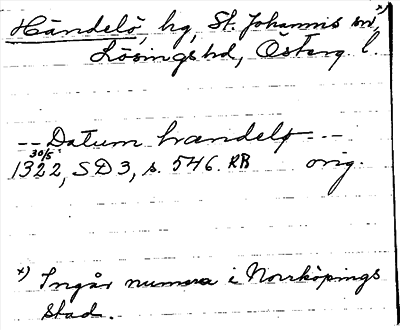 Händelö, hg, St. Johannis sn,x)
Lösings hd, Österg. l.
-- Datum hændelø --
30/5
1322, SD 3, s. 546. RB orig.
x) Ingår numera i Norrköpings
stad.